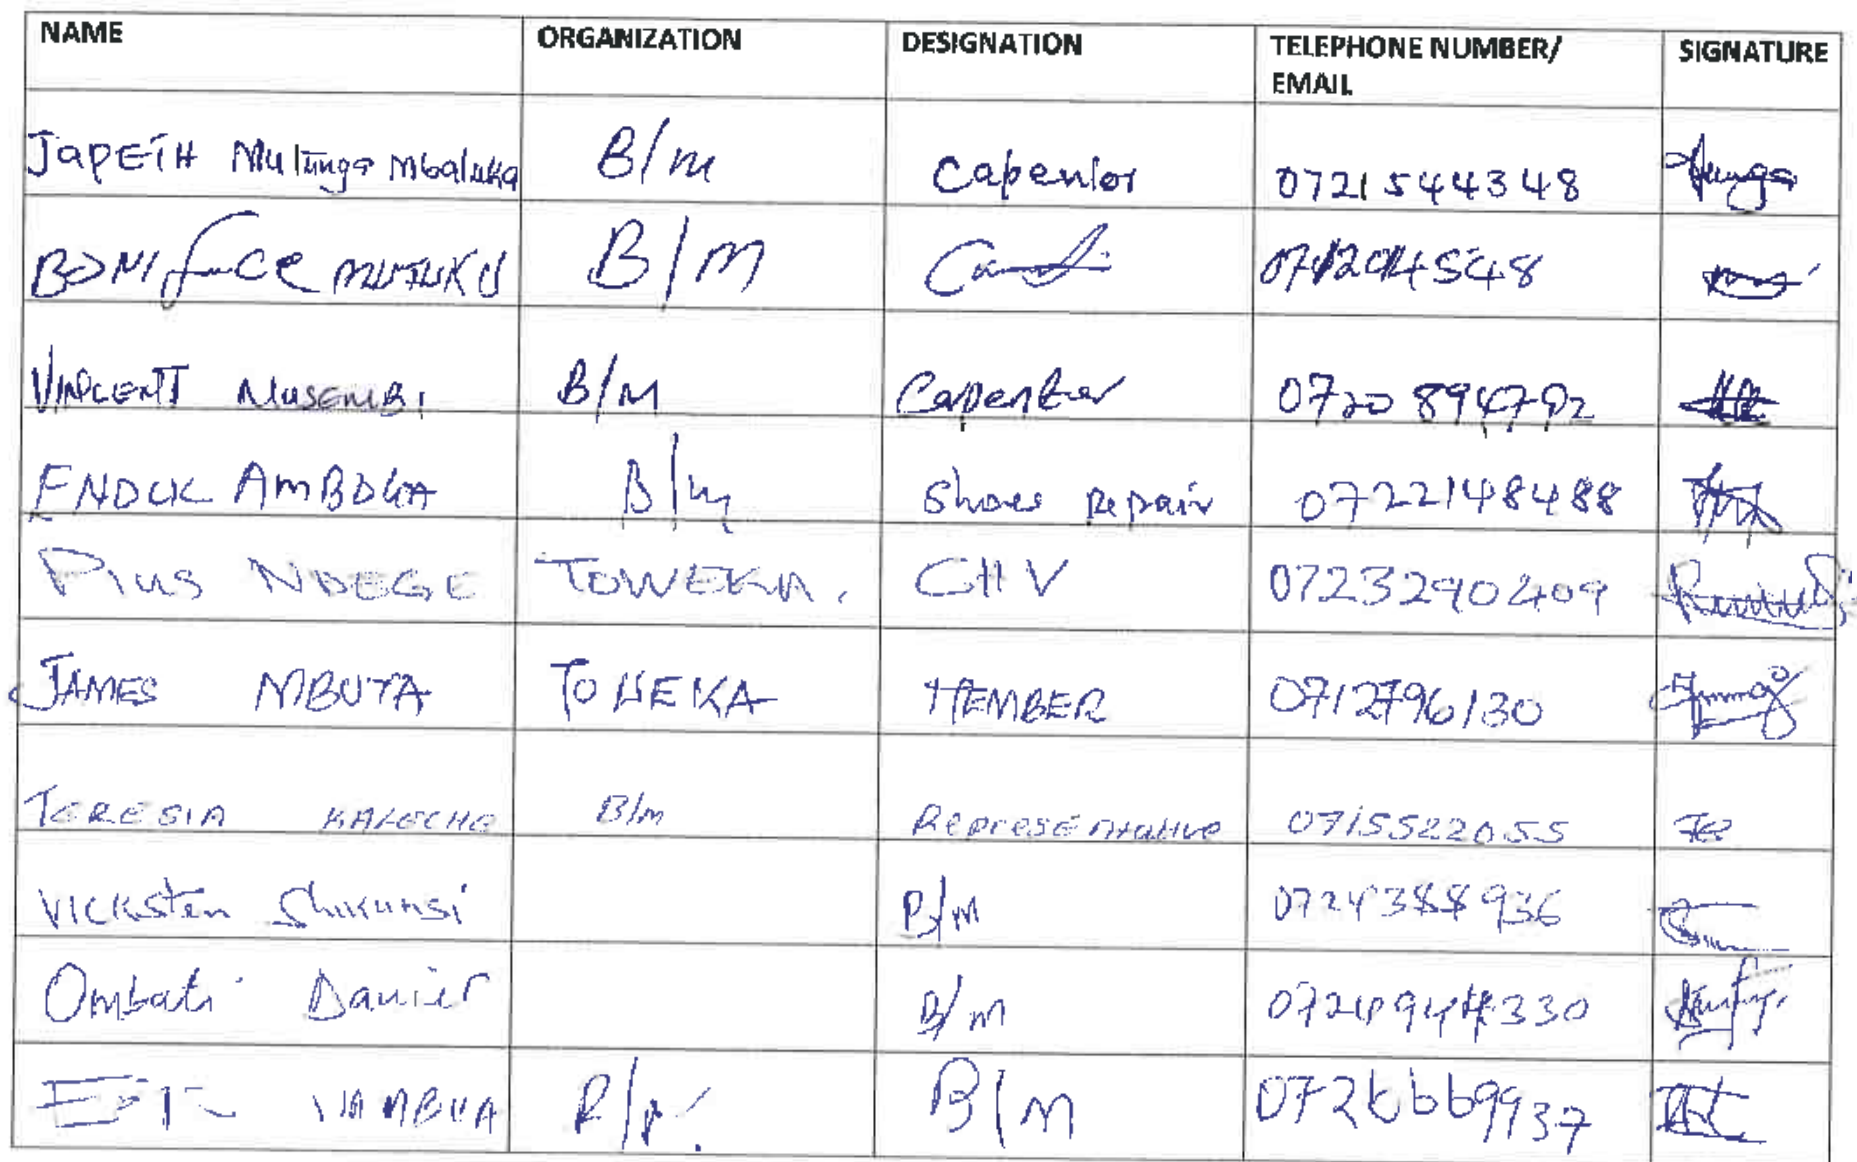 NAME ORGANIZATION DESIGNATION TELEPHONE NUMBER/ EMAIL SIGNATURE
JapETH Mutunga Mbaluka B/m Capentor 0721544348
BONIface MUTUKU B/M
VINCENT MUSEMBI B/M Carpenter 0720894792
ENOCK AMBOKA B/m Shoes Repair 0722148488
Pius NDEGE TOWEKA. CHV 0723290409
JAMES MBUTA TOWEKA MEMBER 0712796130
TERESIA B/m Representative 0715522055
VICKSTEN Shikunsi B/m 0724388936
Ombati Daniel B/m
B/M 0726669937